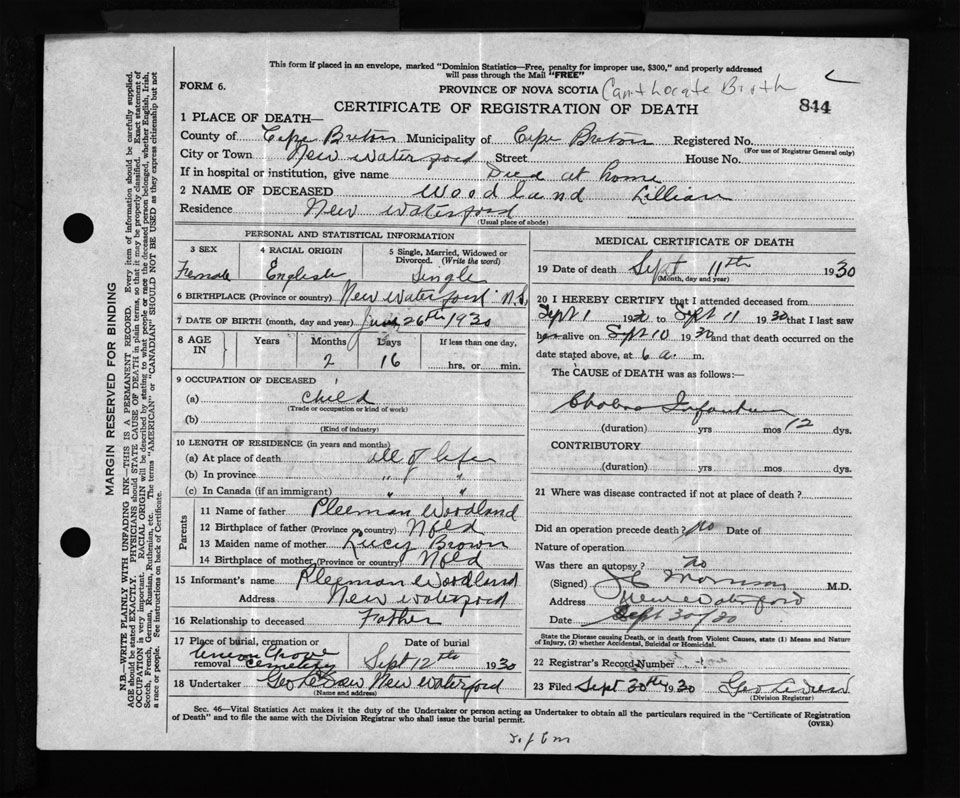 This form if placed in an envelope, marked "Dominion Statistics—Free, penalty for improper use, $300," and properly addressed
will pass through the Mail "FREE"
FORM 6.
PROVINCE OF NOVA SCOTIA Can't Locate Birth
CERTIFICATE OF REGISTRATION OF DEATH 844
1 PLACE OF DEATH—
County of Cape Breton Municipality of Cape Breton Registered No.
(For use of Registrar General only)
City or Town New Waterford Street House No.
If in hospital or institution, give name Died at home
2 NAME OF DECEASED Woodland Lillian
Residence New Waterford
(Usual place of abode)
PERSONAL AND STATISTICAL INFORMATION
3 SEX 4 RACIAL ORIGIN 5 Single, Married, Widowed or
Divorced. (Write the word)
Female English Single
6 BIRTHPLACE (Province or country) New Waterford N.S.
7 DATE OF BIRTH (month, day and year) 26th 1930
8 AGE IN Years Months Days If less than one day,
2 16 hrs. or min.
9 OCCUPATION OF DECEASED
(a) child
(Trade or occupation or kind of work)
(b)
(Kind of industry)
10 LENGTH OF RESIDENCE (in years and months)
(a) At place of death all of life
(b) In province " "
(c) In Canada (if an immigrant) " "
Parents
11 Name of father Pleeman Woodland
12 Birthplace of father (Province or country) Nfld
13 Maiden name of mother Lucy Brown
14 Birthplace of mother (Province or country) Nfld
15 Informant's name Pleeman Woodland
Address New Waterford
16 Relationship to deceased Father
17 Place of burial, cremation or
removal Union Grove Cemetery
Date of burial
Sept 12th 1930
18 Undertaker Geo New Waterford
(Name and address)
MEDICAL CERTIFICATE OF DEATH
19 Date of death Sept 11th 1930
(Month, day and year)
20 I HEREBY CERTIFY that I attended deceased from
Sept 1 1930 to Sept 11 1930 that I last saw
h alive on Sept 10 1930 and that death occurred on the
date stated above, at 6 a. m.
The CAUSE OF DEATH was as follows:—
Cholera Infantum
(duration) yrs mos 12 dys.
CONTRIBUTORY
(duration) yrs mos dys.
21 Where was disease contracted if not at place of death?
Did an operation precede death? no Date of
Nature of operation
Was there an autopsy? no
(Signed) Morrison M.D.
Address New Waterford
Date Sept 30/30
State the Disease causing Death, or in death from Violent Causes, state (1) Means and Nature
of Injury, (2) whether Accidental, Suicidal or Homicidal.
22 Registrar's Record Number
23 Filed Sept 30th 1930 Geo
(Division Registrar)
Sec. 46—Vital Statistics Act makes it the duty of the Undertaker or person acting as Undertaker to obtain all the particulars required in the "Certificate of Registration
of Death" and to file the same with the Division Registrar who shall issue the burial permit. (OVER)
MARGIN RESERVED FOR BINDING
N.B.—WRITE PLAINLY WITH UNFADING INK—THIS IS A PERMANENT RECORD. Every item of information should be carefully supplied.
AGE should be stated EXACTLY. PHYSICIANS should STATE CAUSE OF DEATH in plain terms, so that it may be properly classified. Exact statement of
OCCUPATION is very important. RACIAL ORIGIN will be described by stating to what people or race the deceased person belonged, whether English, Irish,
Scotch, French, German, Russian, Ruthenian, etc. The terms "AMERICAN" or "CANADIAN" SHOULD NOT BE USED as they express citizenship but not
a race or people. See instructions on back of Certificate.